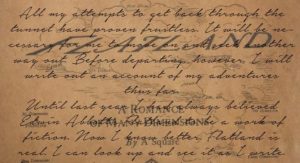 All my attempts to get back through the
tunnel have proven fruitless. It will be ne-
cessary for me to find another
way out. Before departing, however, I will
write out an account of my adventures
thus far.
Until last year I had always believed
Edwin Abbott's to be a work of
fiction. Now I know better. Flatland is
real. I can look up and see it as I write
FLATLAND
A ROMANCE
OF MANY DIMENSIONS
By A Square